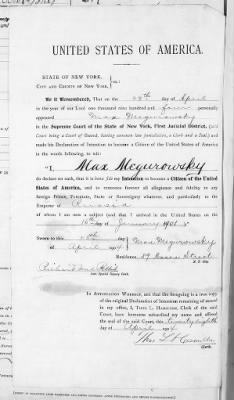 UNITED STATES OF AMERICA.
STATE OF NEW YORK,
CITY AND COUNTY OF NEW YORK, } ss.:
Be it Remembered, That on the 28th day of April
in the year of our Lord one thousand nine hundred and four personally
appeared Max Mcgurowsky
in the Supreme Court of the State of New York, First Judicial District, (said
Court being a Court of Record, having common law jurisdiction, a Clerk and a Seal) and
made his Declaration of Intention to become a Citizen of the United States of America
in the words following, to wit:
"I, Max Mcgurowsky
do declare on oath, that it is bona fide my Intention to become a Citizen of the United
States of America, and to renounce forever all allegiance and fidelity to any
foreign Prince, Potentate, State or Sovereignty whatever, and particularly to the
Emperor of Russia
of whom I am now a subject (and that I arrived in the United States on the
day of January
Sworn to this 28th day } Max Mcgurowsky
of April 1904 Residence, Street
N. Y. City
Special Deputy Clerk.
IN ATTESTATION WHEREOF, and that the foregoing is a true copy
of the original Declaration of Intention remaining of record
in my office, I, THOS. L. HAMILTON, Clerk of the said
Court, have hereunto subscribed my name and affixed
the seal of the said Court, this twenty eighth
day of April 1904
Thos L Hamilton
Clerk.